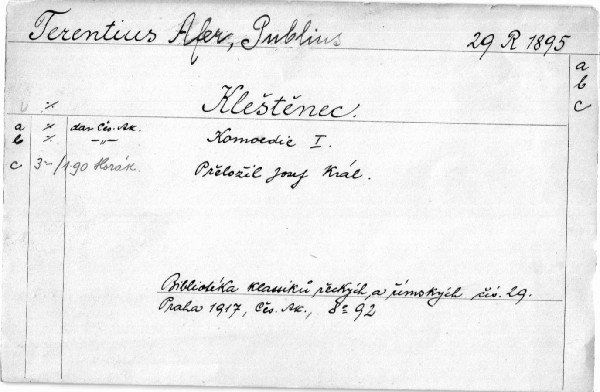 Terentius Afer, Publius 29 R 1895
a
b
c
Kleštěnec.
a % dar Čes. Ak. Komoedie I.
b % -„-
c 3- /1.90 Horák. Přeložil Josef Král.
Bibliotéka klassiků řeckých a římských čís. 29.
Praha 1917, Čes. Ak., 8° 92